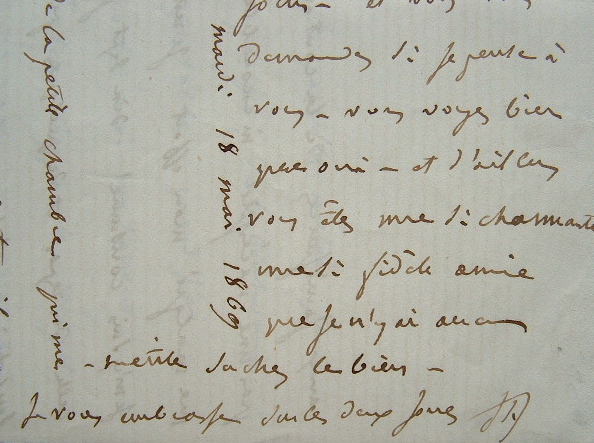 jours - et vous
demandez si je pense à
vous - vous voyez bien
que oui - et d'ailleurs
vous êtes une si charmante
une si fidèle amie
que je n'y ai aucun
mérite sachez le bien -
Je vous embrasse sur les deux joues
mardi 18 mai 1869
de la petite chambre